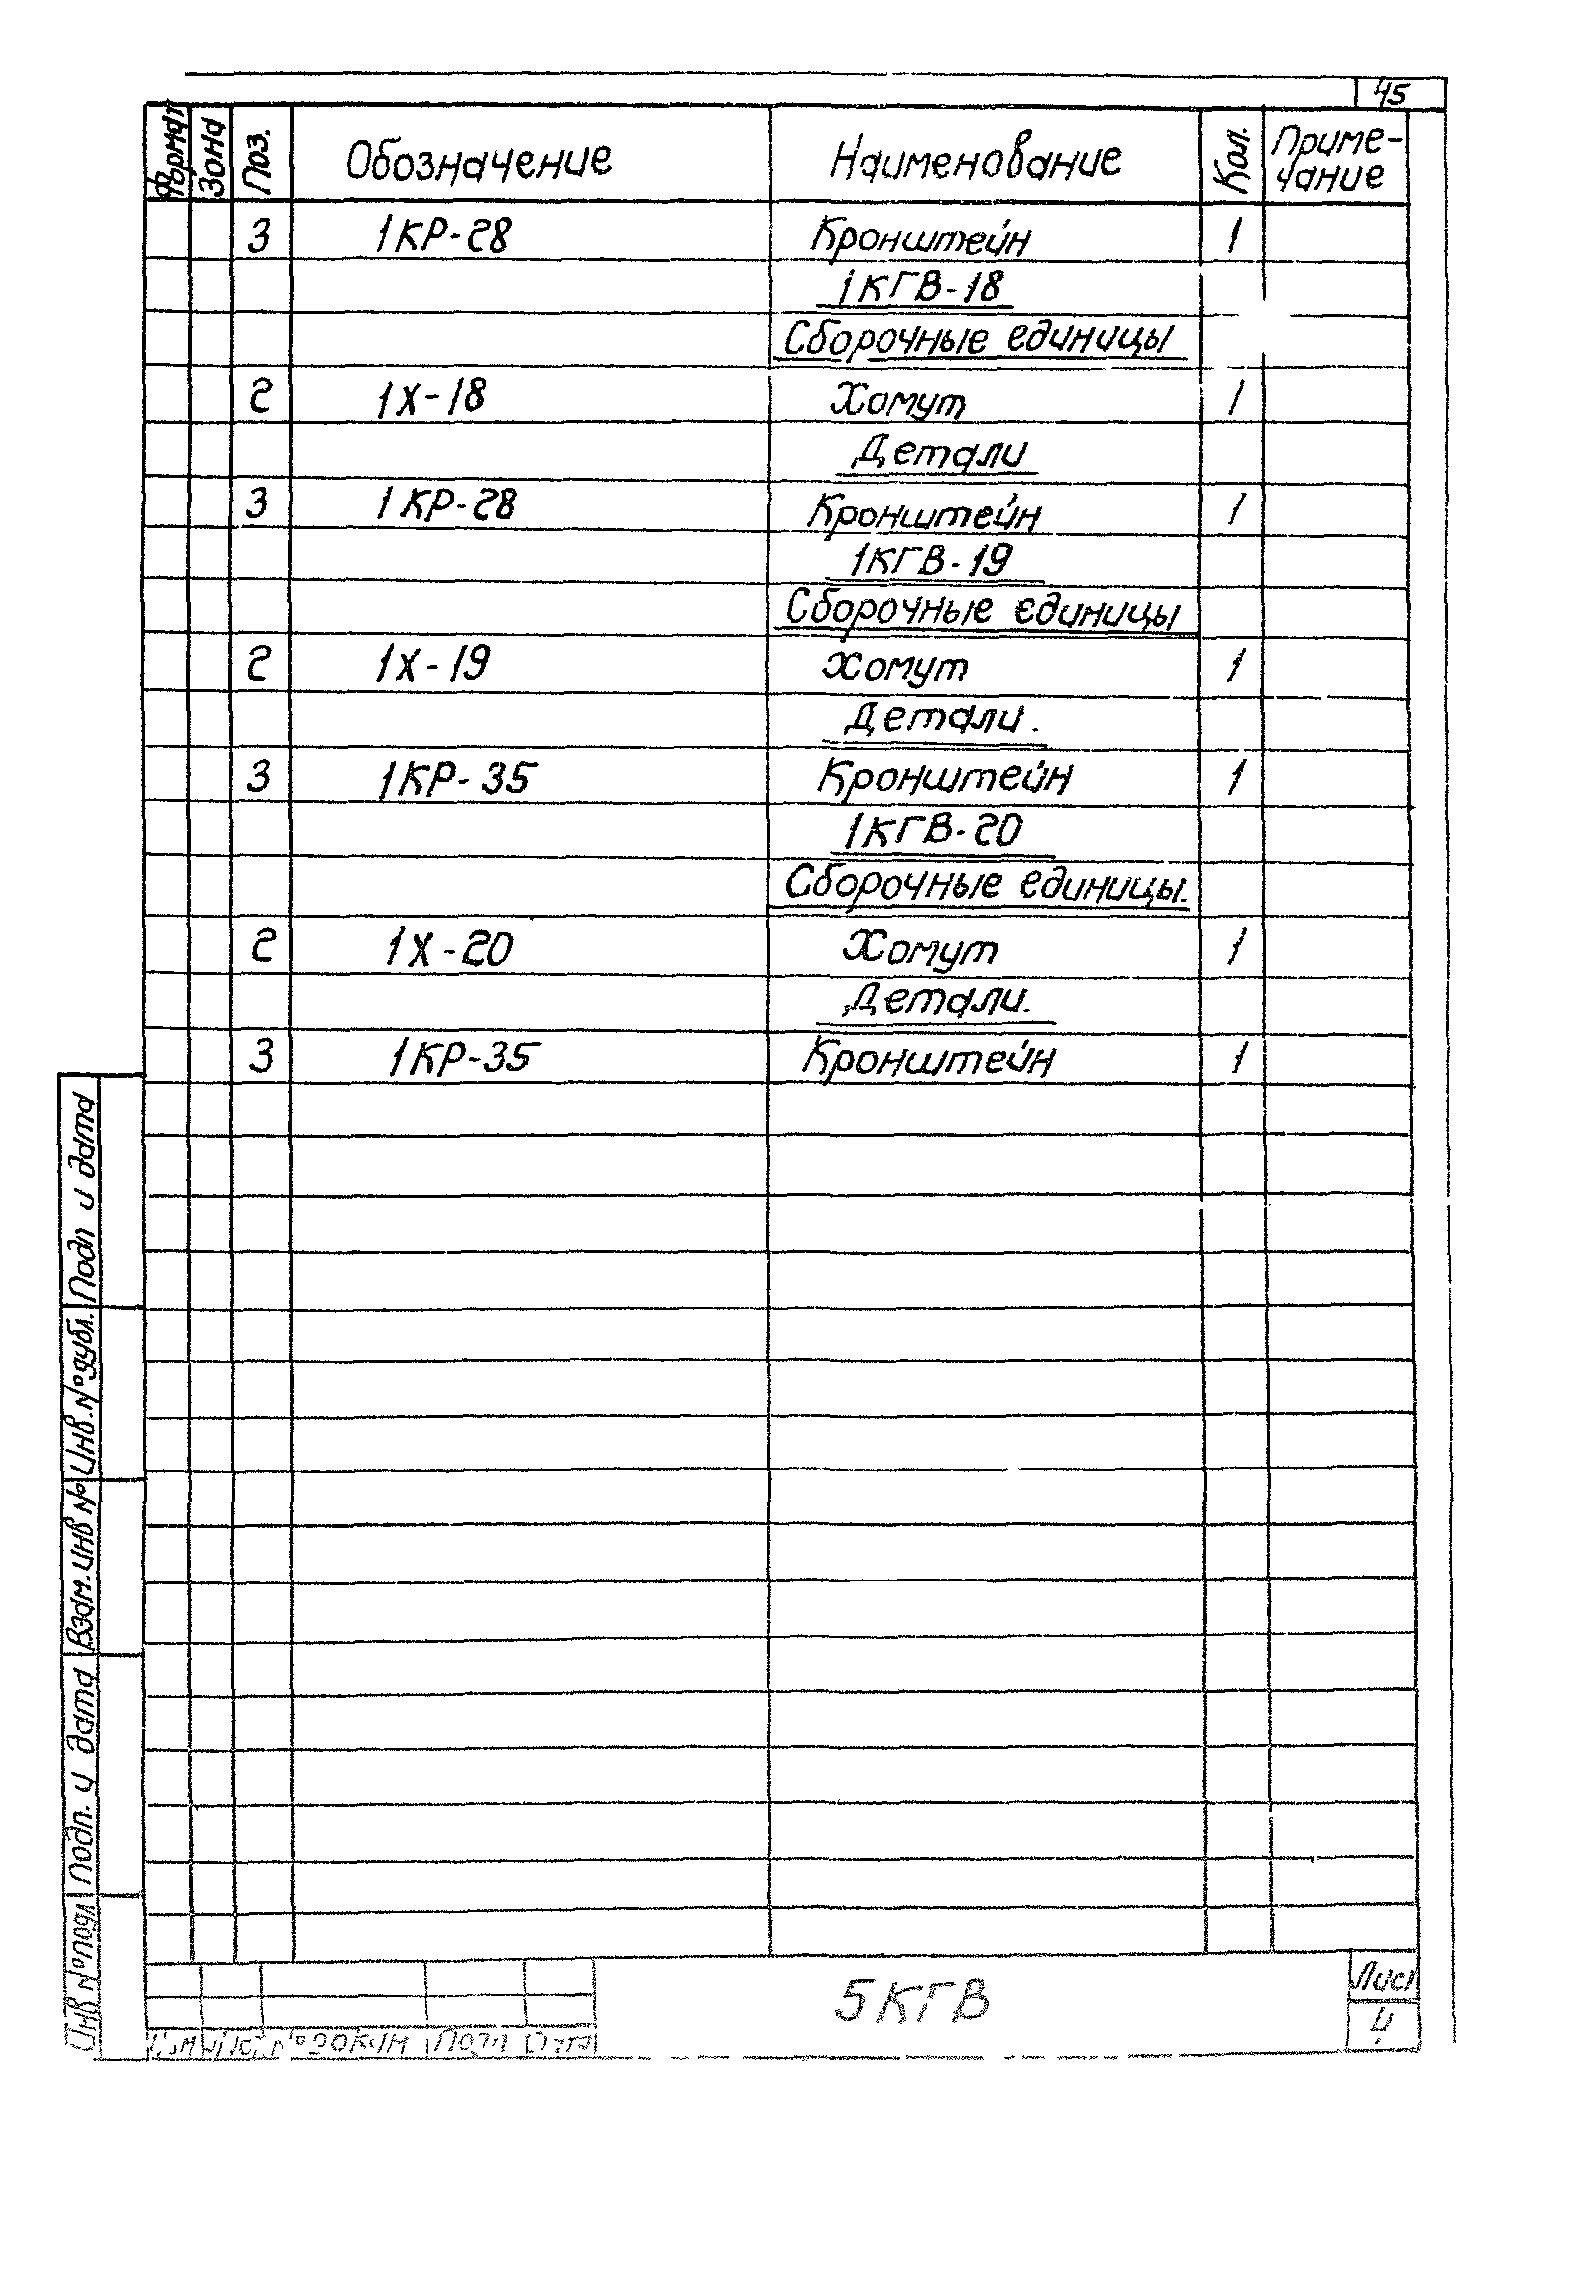 45
Формат Зона Поз. Обозначение Наименование Кол. Приме-
чание
3 1КР-28 Кронштейн 1
1КГВ-18
Сборочные единицы
2 1Х-18 Хомут 1
Детали
3 1КР-28 Кронштейн 1
1КГВ-19
Сборочные единицы
2 1Х-19 Хомут 1
Детали.
3 1КР-35 Кронштейн 1
1КГВ-20
Сборочные единицы.
2 1Х-20 Хомут 1
Детали.
3 1КР-35 Кронштейн 1
Подп и дата
Инв.№дубл.
Взам.инв №
Подп. и дата
Инв №подл
5КГВ
Лист
4
Изм Лист №докум Подп Дата